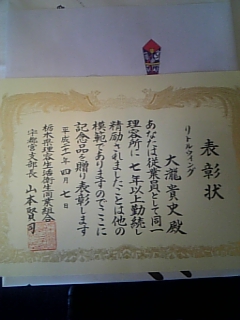 表彰状
リトルウィング
大瀧貴史殿
あなたは従業員として同一
理容所に七年以上勤続し
精励されましたことは他の
模範でありますのでここに
記念品を贈り表彰します
平成二十一年四月七日
栃木県理容生活衛生同業組合
宇都宮支部長 山本賢司